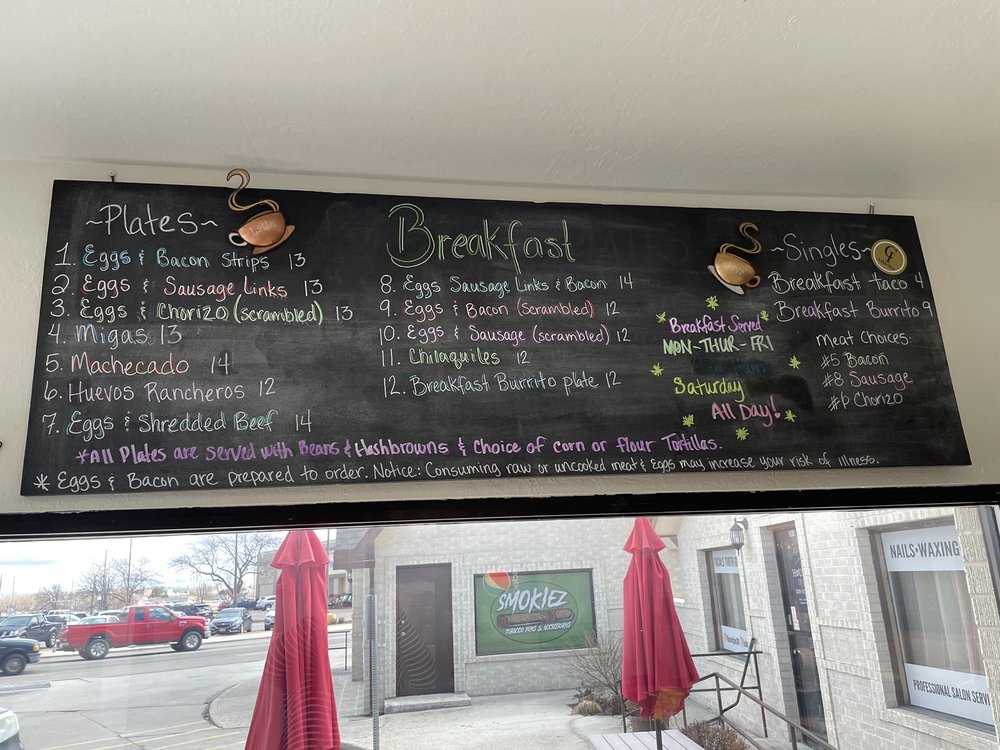 ~Plates~
1. Eggs & Bacon Strips 13
2. Eggs & Sausage Links 13
3. Eggs & Chorizo (scrambled) 13
4. Migas 13
5. Machecado 14
6. Huevos Rancheros 12
7. Eggs & Shredded Beef 14
Breakfast
8. Eggs Sausage Links & Bacon 14
9. Eggs & Bacon (scrambled) 12
10. Eggs & Sausage (scrambled) 12
11. Chilaquiles 12
12. Breakfast Burrito plate 12
Breakfast Served
MON-THUR-FRI
Saturday
All Day!
~Singles~
Breakfast taco 4
Breakfast Burrito 9
Meat Choices:
#5 Bacon
#8 Sausage
#6 Chorizo
*All Plates are served with Beans & Hashbrowns & Choice of corn or flour Tortillas.
* Eggs & Bacon are prepared to order. Notice: Consuming raw or uncooked meat & Eggs may increase your risk of illness.
SMOKIEZ
TOBACCO PIPES & ACCESSORIES
NAILS•WAXING
PROFESSIONAL SALON SERVI